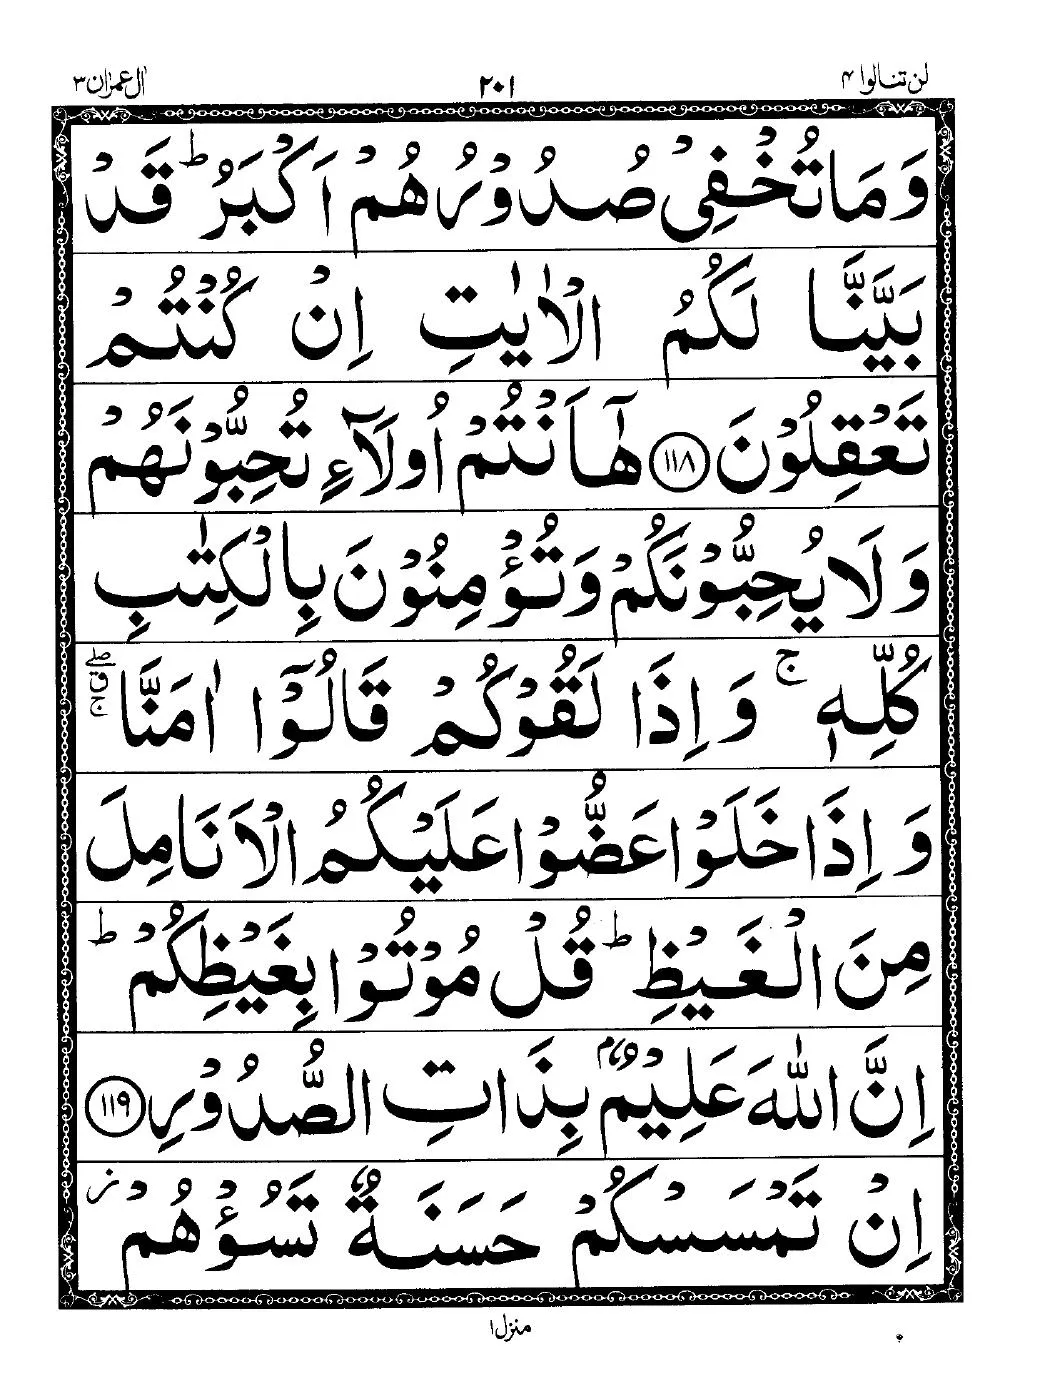 اٰل عمرٰن ٣
٢٠١
لن تنالوا ٤
وَمَا تُخْفِیْ صُدُوْرُهُمْ اَكْبَرُ ؕ قَدْ
بَیَّنَّا لَكُمُ الْاٰیٰتِ اِنْ كُنْتُمْ
تَعْقِلُوْنَ ﴿۱۱۸﴾ هٰۤاَنْتُمْ اُولَآءِ تُحِبُّوْنَهُمْ
وَلَا یُحِبُّوْنَكُمْ وَتُؤْمِنُوْنَ بِالْكِتٰبِ
كُلِّهٖ ۚ وَاِذَا لَقُوْكُمْ قَالُوْۤا اٰمَنَّا ۖۗۚ
وَاِذَا خَلَوْا عَضُّوْا عَلَیْكُمُ الْاَنَامِلَ
مِنَ الْغَیْظِ ؕ قُلْ مُوْتُوْا بِغَیْظِكُمْ ؕ
اِنَّ اللّٰهَ عَلِیْمٌۢ بِذَاتِ الصُّدُوْرِ ﴿۱۱۹﴾
اِنْ تَمْسَسْكُمْ حَسَنَةٌ تَسُؤْهُمْ ؗ
منزل ١